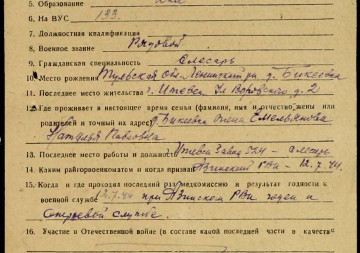 5. Образование
6. На ВУС 133.
7. Должностная квалификация
8. Военное звание Рядовой
9. Гражданская специальность Слесарь
10. Место рождения Тульская Обл. Ленинский р. д. Бикеевка
11. Последнее место жительства г. Ижевск ул Воровского д. 2
12. Где проживает в настоящее время семья (фамилия, имя и отчество жены или
родителей и точный их адрес) д. Бикеевка Емельянова
Наталья Павловна
13. Последнее место работы и должность Ижевск Завод 524 – слесарь
14. Каким райгорвоенкоматом и когда призван Азинский РВК – 12.7.44.
15. Когда и где проходил последний раз медкомиссию и результат годности к
военной службе 12.7.44 при Азинском РВК годен к
строевой службе.
16. Участие в Отечественной войне (в составе какой последней части в качестве